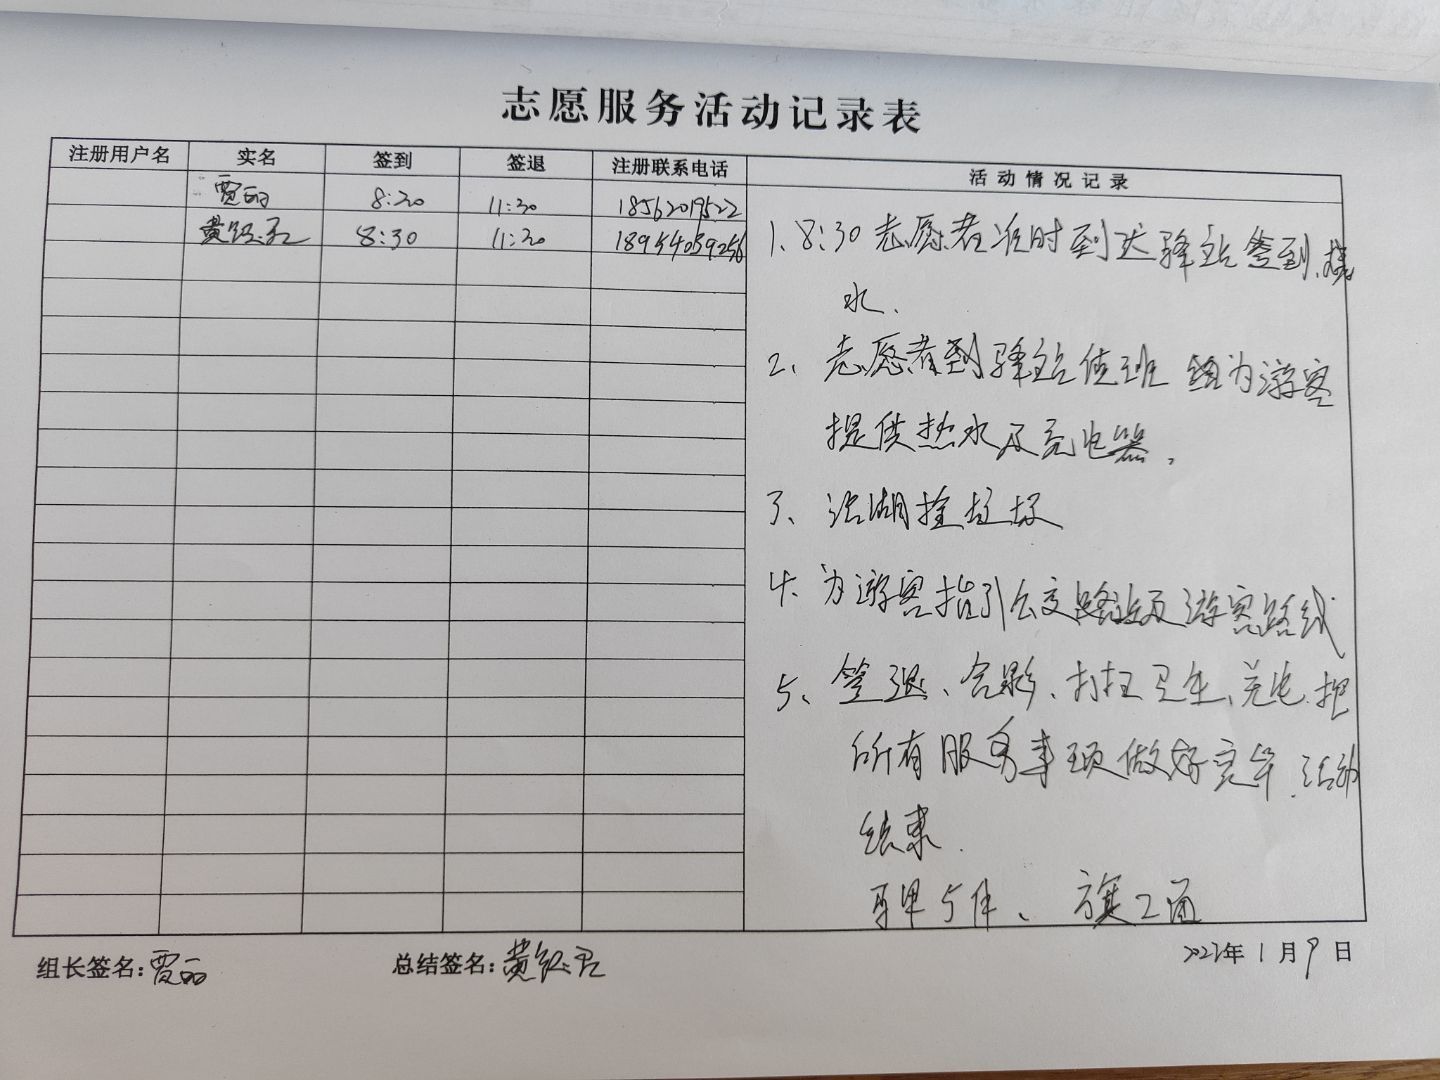 志愿服务活动记录表
注册用户名 实名 签到 签退 注册联系电话 活动情况记录
贾丽 8:20 11:30 18562019522
黄 8:30 11:30 18954059256
1、8:30志愿者准时到达驿站签到、
水.
2、志愿者到驿站值班 为游客
提供热水及充电器.
3、沿湖捡垃圾
4、为游客指引公交路线及游客路线
5、签退、合影、打扫卫生、关电.把
所有服务事项做好完毕.活动
结束.
马甲5件、旗2面
组长签名:贾丽 总结签名:黄 年1月9日